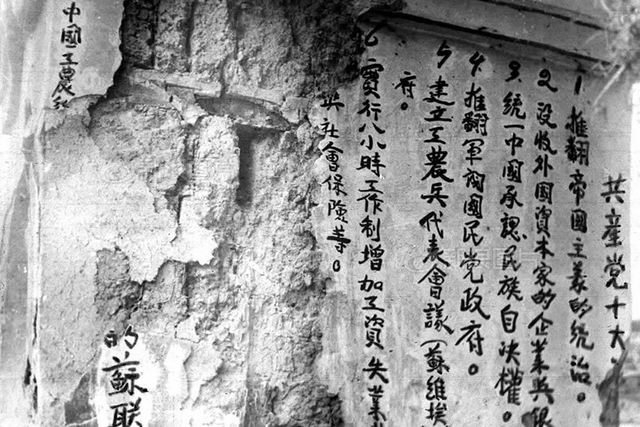 共產党十大
1 推翻帝國主義的統治。
2 没收外國資本家的企業與銀
3 統一中國承認民族自决權。
4 推翻軍閥國民党政府。
5 建立工農兵代表會議(蘇維埃
府。
6 實行八小時工作制增加工資失業
與社會保險等。
的蘇联
中國工農紅